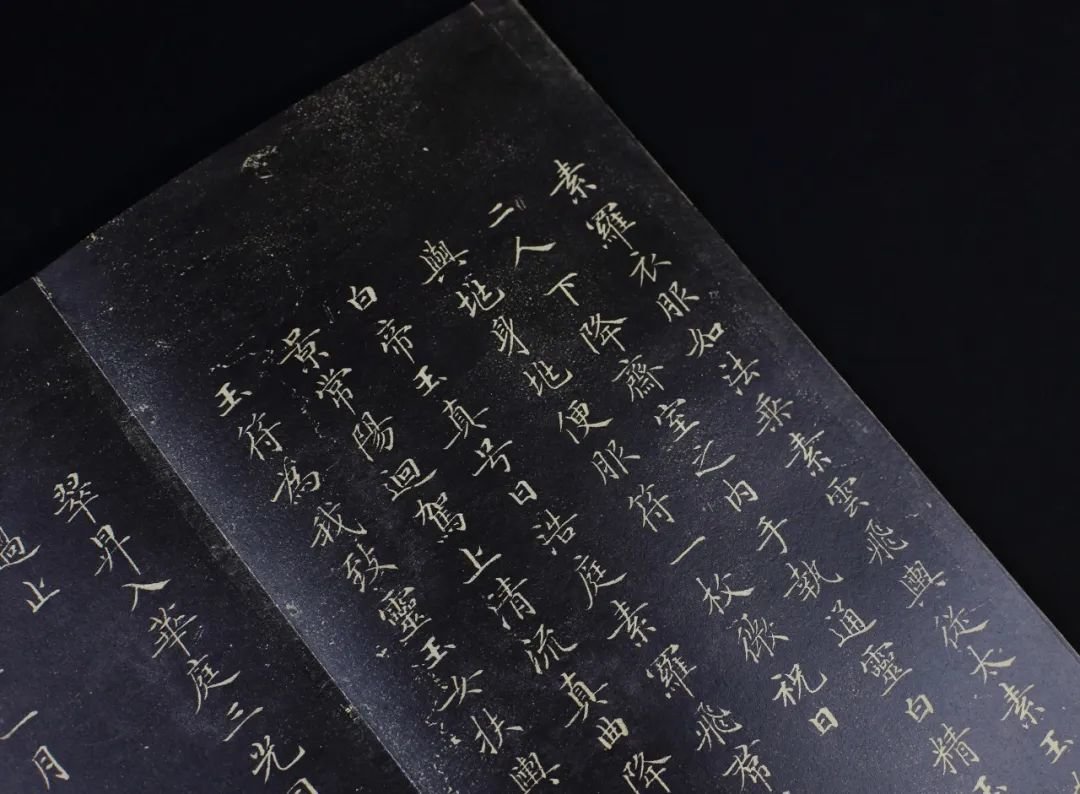 素羅衣服如法乘素雲飛輿從太素玉
二人下降齋室之內手執通靈白精玉
與兆身兆便服符一枚微祝曰
白帝玉真号曰浩庭素羅飛
景常陽迴駕上清流真曲降
玉符為我致靈玉女扶輿
翠昇入華庭三光
過止
一月